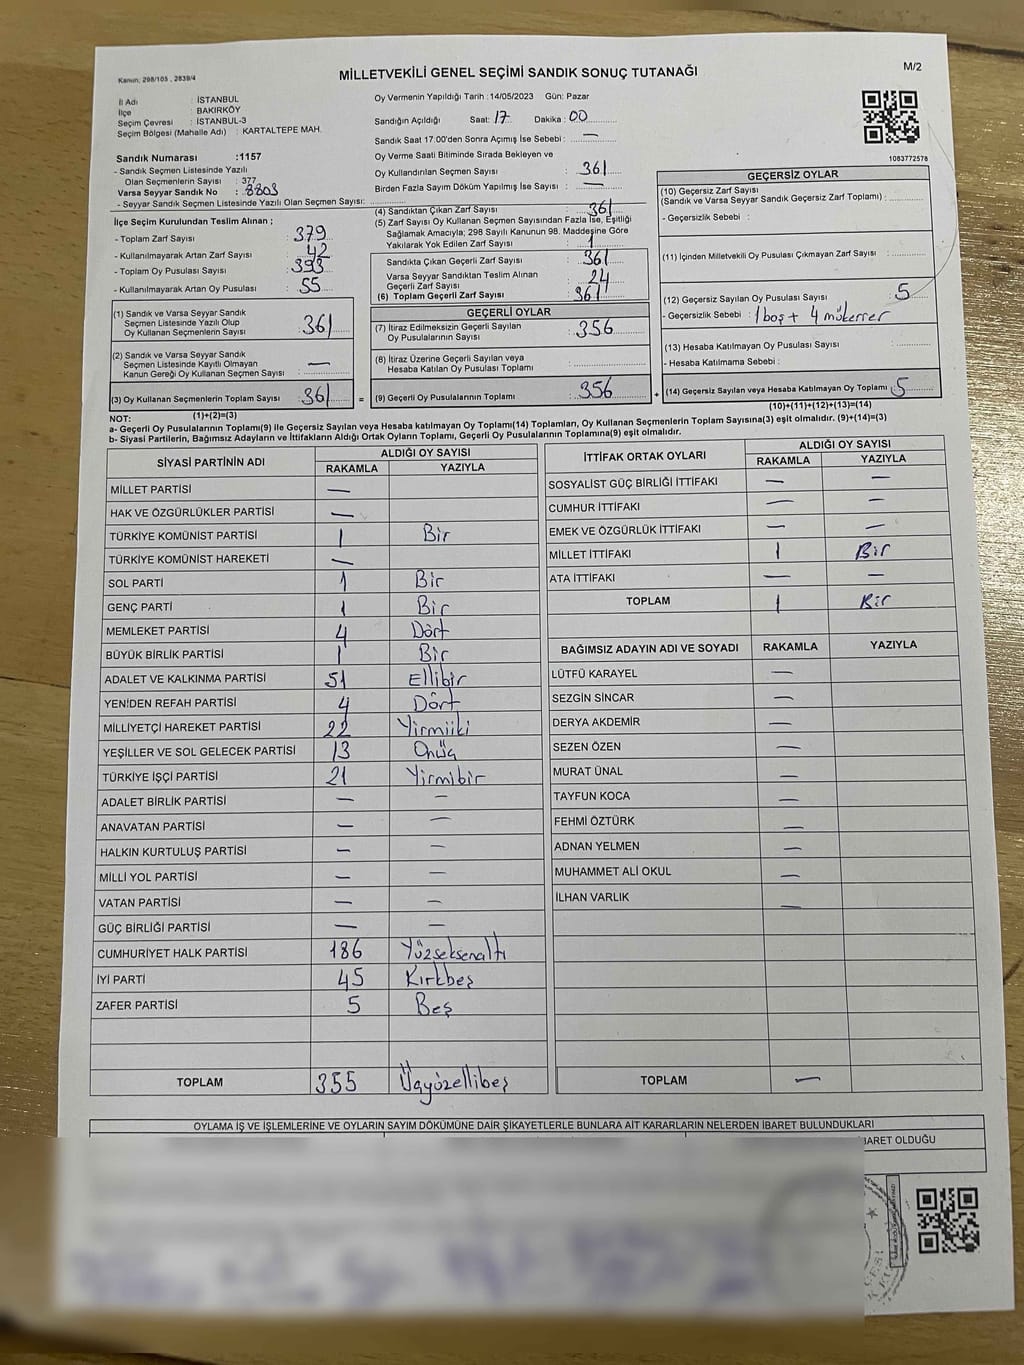 Kanun, 298/105 , 2839/4
MİLLETVEKİLİ GENEL SEÇİMİ SANDIK SONUÇ TUTANAĞI
M/2
İl Adı : İSTANBUL
İlçe : BAKIRKÖY
Seçim Çevresi : İSTANBUL-3
Seçim Bölgesi (Mahalle Adı) : KARTALTEPE MAH.
Oy Vermenin Yapıldığı Tarih : 14/05/2023 Gün: Pazar
Sandığın Açıldığı Saat: 17 Dakika : 00
Sandık Saat 17:00'den Sonra Açımış İse Sebebi : —
Sandık Numarası :1157
- Sandık Seçmen Listesinde Yazılı
Olan Seçmenlerin Sayısı : 377
Varsa Seyyar Sandık No : 8803
- Seyyar Sandık Seçmen Listesinde Yazılı Olan Seçmen Sayısı:
Oy Verme Saati Bitiminde Sırada Bekleyen ve
Oy Kullandırılan Seçmen Sayısı : 361
Birden Fazla Sayım Döküm Yapılmış İse Sayısı : —
1083772578
İlçe Seçim Kurulundan Teslim Alınan ;
- Toplam Zarf Sayısı : 379
- Kullanılmayarak Artan Zarf Sayısı : 42
- Toplam Oy Pusulası Sayısı : 393
- Kullanılmayarak Artan Oy Pusulası : 55
(1) Sandık ve Varsa Seyyar Sandık
Seçmen Listesinde Yazılı Olup
Oy Kullanan Seçmenlerin Sayısı : 361
(2) Sandık ve Varsa Seyyar Sandık
Seçmen Listesinde Kayıtlı Olmayan
Kanun Gereği Oy Kullanan Seçmen Sayısı : —
(3) Oy Kullanan Seçmenlerin Toplam Sayısı : 361
(1)+(2)=(3)
(4) Sandıktan Çıkan Zarf Sayısı : 361
(5) Zarf Sayısı Oy Kullanan Seçmen Sayısından Fazla İse, Eşitliği
Sağlamak Amacıyla; 298 Sayılı Kanunun 98. Maddesine Göre
Yakılarak Yok Edilen Zarf Sayısı : 1
Sandıkta Çıkan Geçerli Zarf Sayısı : 361
Varsa Seyyar Sandıktan Teslim Alınan
Geçerli Zarf Sayısı : 24
(6) Toplam Geçerli Zarf Sayısı : 361
GEÇERLİ OYLAR
(7) İtiraz Edilmeksizin Geçerli Sayılan
Oy Pusulalarının Sayısı : 356
(8) İtiraz Üzerine Geçerli Sayılan veya
Hesaba Katılan Oy Pusulası Toplamı :
= (9) Geçerli Oy Pusulalarının Toplamı : 356
GEÇERSİZ OYLAR
(10) Geçersiz Zarf Sayısı
(Sandık ve Varsa Seyyar Sandık Geçersiz Zarf Toplamı) :
- Geçersizlik Sebebi :
(11) İçinden Milletvekili Oy Pusulası Çıkmayan Zarf Sayısı :
(12) Geçersiz Sayılan Oy Pusulası Sayısı : 5
- Geçersizlik Sebebi : 1 boş + 4 mükerrer
(13) Hesaba Katılmayan Oy Pusulası Sayısı :
- Hesaba Katılmama Sebebi :
+ (14) Geçersiz Sayılan veya Hesaba Katılmayan Oy Toplamı : 5
(10)+(11)+(12)+(13)=(14)
NOT:
a- Geçerli Oy Pusulalarının Toplamı(9) ile Geçersiz Sayılan veya Hesaba katılmayan Oy Toplamı(14) Toplamları, Oy Kullanan Seçmenlerin Toplam Sayısına(3) eşit olmalıdır. (9)+(14)=(3)
b- Siyasi Partilerin, Bağımsız Adayların ve İttifakların Aldığı Ortak Oyların Toplamı, Geçerli Oy Pusulalarının Toplamına(9) eşit olmalıdır.
SİYASİ PARTİNİN ADI
ALDIĞI OY SAYISI
RAKAMLA YAZIYLA
MİLLET PARTİSİ —
HAK VE ÖZGÜRLÜKLER PARTİSİ —
TÜRKİYE KOMÜNİST PARTİSİ 1 Bir
TÜRKİYE KOMÜNİST HAREKETİ —
SOL PARTİ 1 Bir
GENÇ PARTİ 1 Bir
MEMLEKET PARTİSİ 4 Dört
BÜYÜK BİRLİK PARTİSİ 1 Bir
ADALET VE KALKINMA PARTİSİ 51 Ellibir
YENİDEN REFAH PARTİSİ 4 Dört
MİLLİYETÇİ HAREKET PARTİSİ 22 Yirmiiki
YEŞİLLER VE SOL GELECEK PARTİSİ 13 Onüç
TÜRKİYE İŞÇİ PARTİSİ 21 Yirmibir
ADALET BİRLİK PARTİSİ — —
ANAVATAN PARTİSİ — —
HALKIN KURTULUŞ PARTİSİ — —
MİLLİ YOL PARTİSİ — —
VATAN PARTİSİ — —
GÜÇ BİRLİĞİ PARTİSİ — —
CUMHURİYET HALK PARTİSİ 186 Yüzseksenaltı
İYİ PARTİ 45 Kırkbeş
ZAFER PARTİSİ 5 Beş
TOPLAM 355 Üçyüzellibeş
İTTİFAK ORTAK OYLARI
ALDIĞI OY SAYISI
RAKAMLA YAZIYLA
SOSYALİST GÜÇ BİRLİĞİ İTTİFAKI — —
CUMHUR İTTİFAKI — —
EMEK VE ÖZGÜRLÜK İTTİFAKI — —
MİLLET İTTİFAKI 1 Bir
ATA İTTİFAKI — —
TOPLAM 1 Bir
BAĞIMSIZ ADAYIN ADI VE SOYADI RAKAMLA YAZIYLA
LÜTFÜ KARAYEL —
SEZGİN SİNCAR —
DERYA AKDEMİR —
SEZEN ÖZEN —
MURAT ÜNAL —
TAYFUN KOCA —
FEHMİ ÖZTÜRK —
ADNAN YELMEN —
MUHAMMET ALİ OKUL —
İLHAN VARLIK —
TOPLAM —
OYLAMA İŞ VE İŞLEMLERİNE VE OYLARIN SAYIM DÖKÜMÜNE DAİR ŞİKAYETLERLE BUNLARA AİT KARARLARIN NELERDEN İBARET BULUNDUKLARI
BARET OLDUĞU